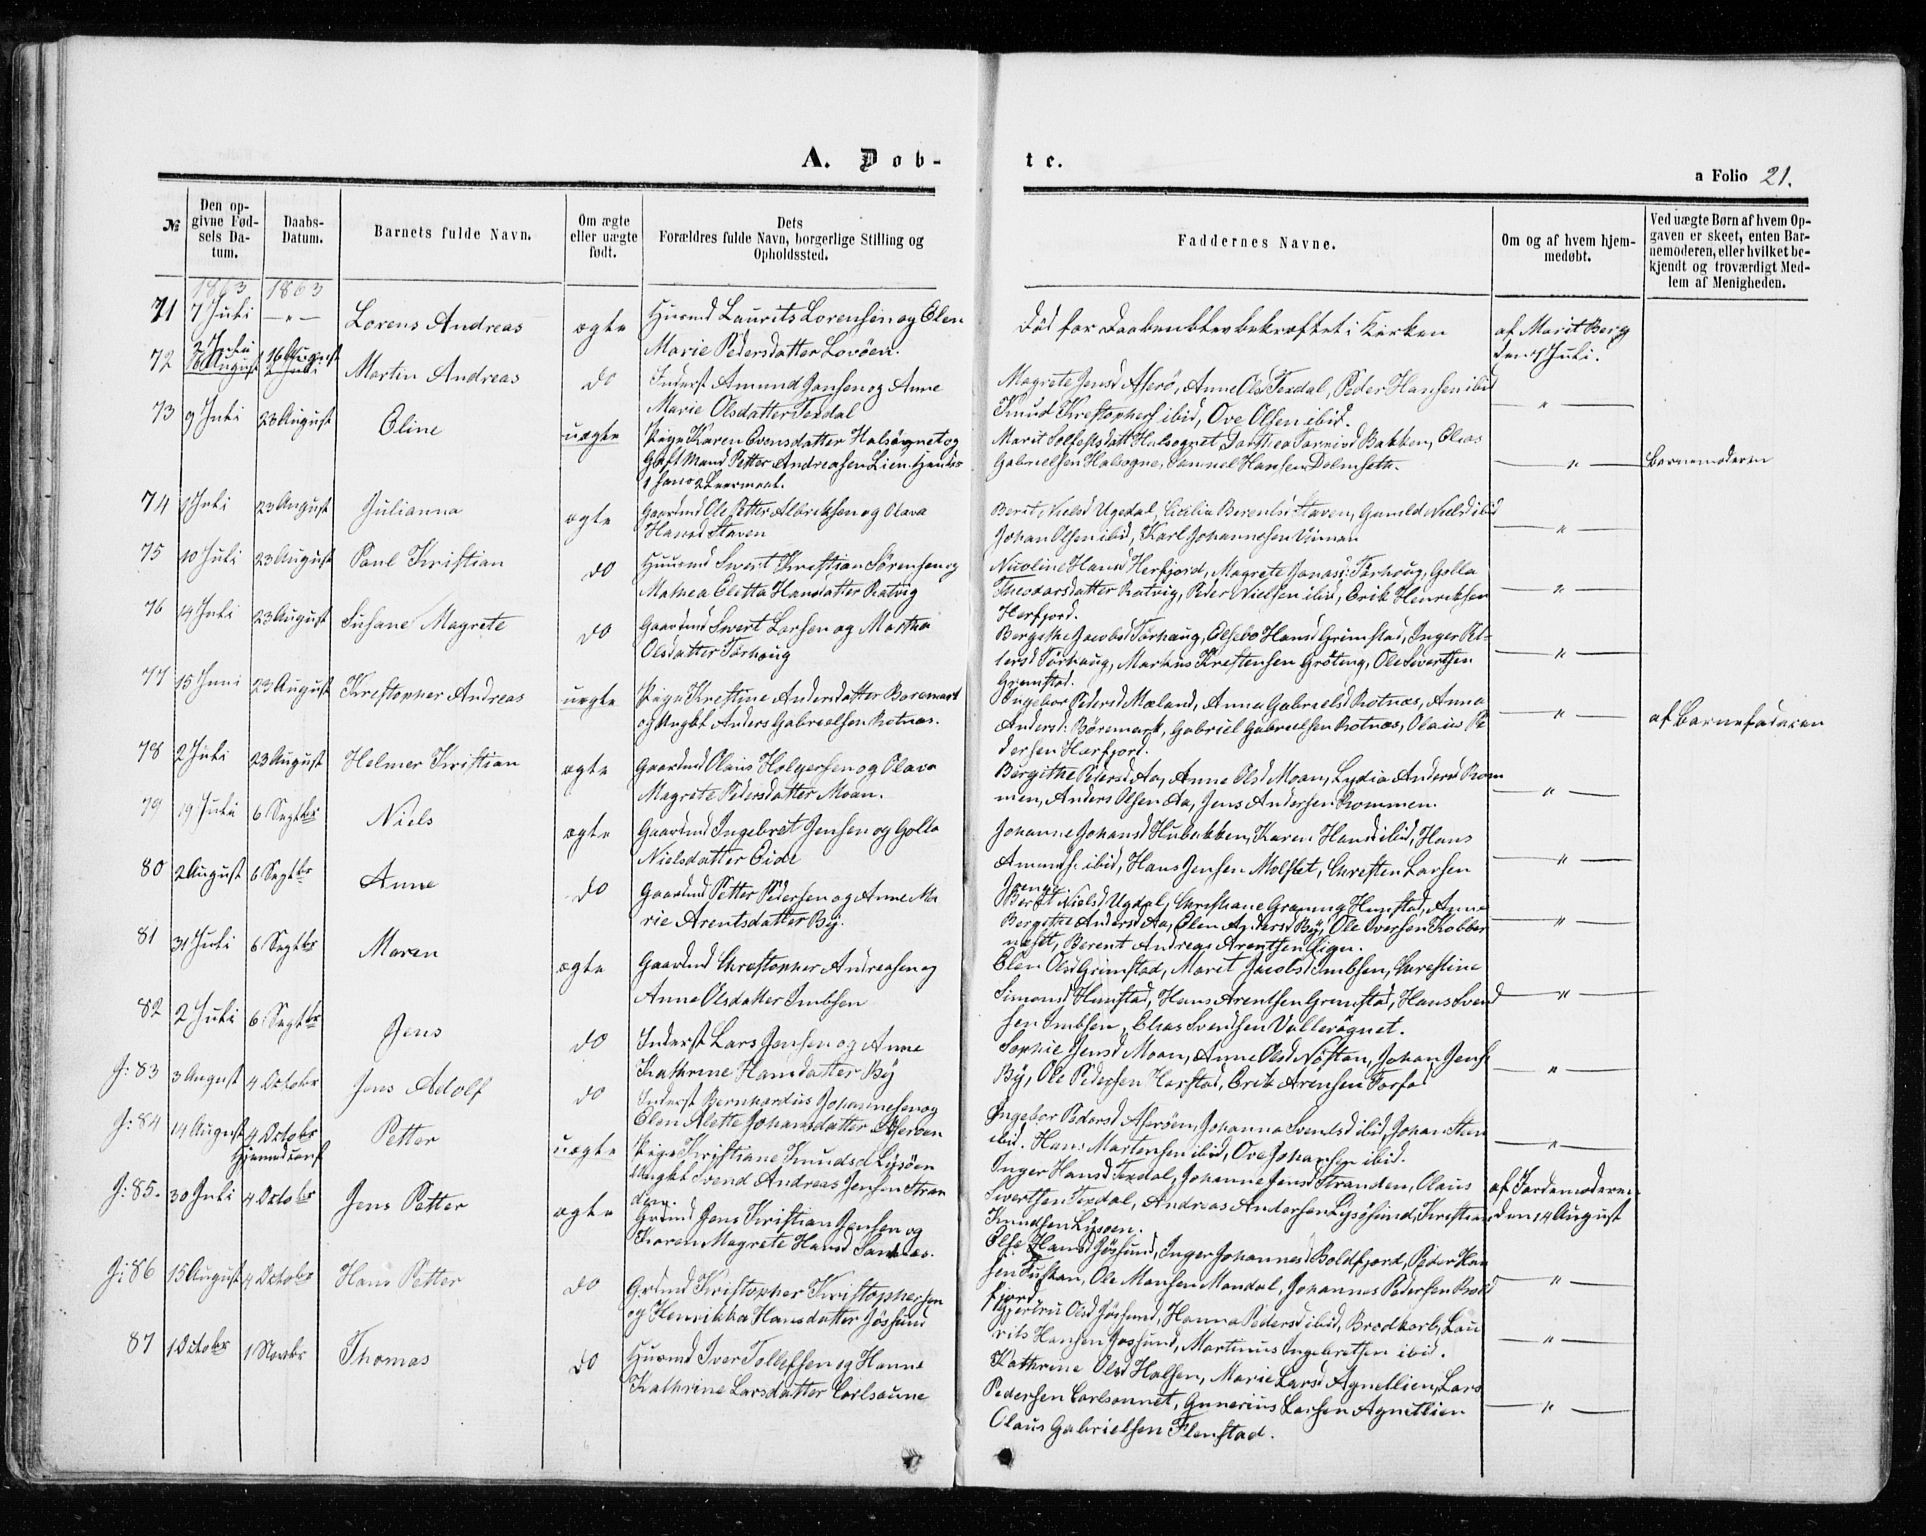 A. Døb-
te.
a Folio 21.
№
Den op-
givne Fød-
sels Da-
tum.
Daabs-
Datum.
Barnets fulde Navn.
Om ægte
eller uægte
født.
Dets
Forældres fulde Navn, borgerlige Stilling og
Opholdssted.
Faddernes Navne.
Om og af hvem hjem-
medøbt.
Ved uægte Børn af hvem Op-
gaven er skeet, enten Bar-
nemoderen, eller hvilket be-
kjendt og troværdigt Med-
lem af Menigheden.
1863 1863
71 7 Juli —"— Lorens Andreas ægte Huusmd Laurits Lorensen og Elen
Marie Pedersdatter Lovöen.
Död før Daaben blev bekræftet i Kirken
af Marit Berg
den 7 Juli.
72 2 Juli 16 August Martin Andreas do Inderst Amund Jensen og Anne
Marie Olsdatter Texdal
Magrete Jensd Aſerö, Anne Olsd Texdal, Peder Hansen ibid
Knud Kristophers ibid, Ove Olsen ibid.
—"—
73 9 Juli 23 August Eline uægte Pige Karen Evensdatter Halsögnet og
Gift Mand Petter Andreasen Lien
Gabrielsen Halsögne, Samuel Hansen Dolmseth.
—"—
Barnemoderen
74 Juli 23 August Julianna ægte Gaardmd Ole Petter Albriktsen og Olava
Hansd Staven
Berit Nielsd Ugedal, Cicilia Berentsd Staven, Gunild Nielsd ibid
Johan Olsen ibid, Karl Johannesen
—"—
75 10 Juli 23 August Paul Kristian do Huusmd Sivert Kristian Sörensen og
Mathea Eletta Hansdatter Ratvig
Nicoline Hansd Herfjord, Magrete Jonasd: Törhoug, Golla
Theodorsdatter Ratvig, Peder Nielsen ibid, Erik Henriksen
Herfjord.
—"—
76 14 Juli 23 August Susane Magrete do Gaardmd Sivert Larsen og Martha
Olsdatter Törhoug
Bergithe Jacobsd Törhaug, Elsebe Hansd Grimstad, Inger Pe-
dersd Törhaug, Markus Kristensen Gröting, Ole Sivertsen
Grimstad.
—"—
77 15 Juni 23 August Kristopher Andreas uægte Pige Kristine Andersdatter Boremark
og Ungkl Anders Gabrielsen Rotnæs.
Ingebor Pedersd Mæland, Anna Gabrielsd Rotnæs, Anna
Andersd: Börsmark, Gabriel Gabrielsen Rotnæs, Olaus Pe
dersen Herfjord.
—"—
af Barnefaderen
78 2 Juli 23 August Helmer Kristian ægte Gaardmd Olaus Holgersen og Olava
Magrete Pedersdatter Moan.
Bergithe Pedersd Aa, Anne Olsd Moan, Lydia Andersd Rom
men, Anders Olsen Aa, Jens Andersen Rommen.
—"—
79 19 Juli 6 Septbr Niels ægte Gaardmd Ingebret Jensen og Golla
Nielsdatter Eide
Johanne Johansd Hubakken, Karen Hansd ibid, Hans
Amunds. ibid, Hans Jensen Molstet, Christen Larsen
—"—
80 2 August 6 Septbr Anne do Gaardmd Petter Pedersen og Anne Ma
rie Arentsdatter By.
Berit Nielsd Ugdal, Christiane Gröning Humstad, Anne
Bergitte Andersd Aa, Elen Andersd By, Ole Iversen Kobber
Berent Andreas Arentsen
—"—
81 31 Juli 6 Septbr Maren ægte Gaardmd Christopher Andreasen og
Anne Olsdatter Imbsen
Elen Olsd Grimstad, Marit Jacobsd Imbsen, Christine
Simonsd Humstad, Hans Arentsen Grimstad, Hans Svend
sen Imbsen, Elias Svendsen Vallersögnet.
—"—
82 2 Juli 6 Septbr Jens do Inderst Lars Jensen og Anne
Kathrine Hansdatter By
Sophie Jensd Moan, Anne Olsd Nösten, Johan Jens
By, Ole Pedersen Harstad, Erik Arensen
—"—
J: 83 3 August 4 October Jens Adolf do Inderst Bernhardus Johannesen og
Elen Alette Johansdatter
Ingebor Pedersd Aſeröen, Johanna Svendsd ibid, Johan Sten
ibid. Hans Martensen ibid, Ove Johansen ibid.
—"—
J: 84 14 August 4 October
Hjemmedöbt
Petter uægte Pige Kristiane Knudsd Lysöen
Ungkl Svend Andreas Jensen Stran
den.
Inger Hansd Texdal, Johanne Jensd Stranden, Olaus
Sivertsen Texdal, Andreas Andersen Lysösund, Kristian
Knudsen Lysöen.
af Jordemoderen
den 14 August
J: 85. 30 Juli 4 October Jens Petter ægte Grdmd Jens Kristian Jensen og
Karen Magrete Hansd Sandnæs.
Else Hansd Jössund, Inger Johannesd Boldfjord, Peder Han
sen Tustan, Ole Monsen Mandal, Johannes Pedersen Bold
fjord
—"—
J: 86 15 August 4 October Hans Petter do Grdmd Kristopher Kristophersen
og Henrikka Hansdatter Jössund
Gjertru Olsd Jössund, Hanna Pedersd ibid, Brodkorb, Lau
rits Hansen Jössund, Martinus Ingebretsen ibid.
—"—
87 1 October 1 Novbr Thomas do Huusmd Iver Tollefsen og Hanne
Kathrine Larsdatter Carlsaune
Kathrine Olsd Halsen, Marie Larsd Agnetlien, Lars
Pedersen Carlsonnet, Gunerius Larsen Agnetlien
Olaus Gabrielsen Flenstad.
—"—